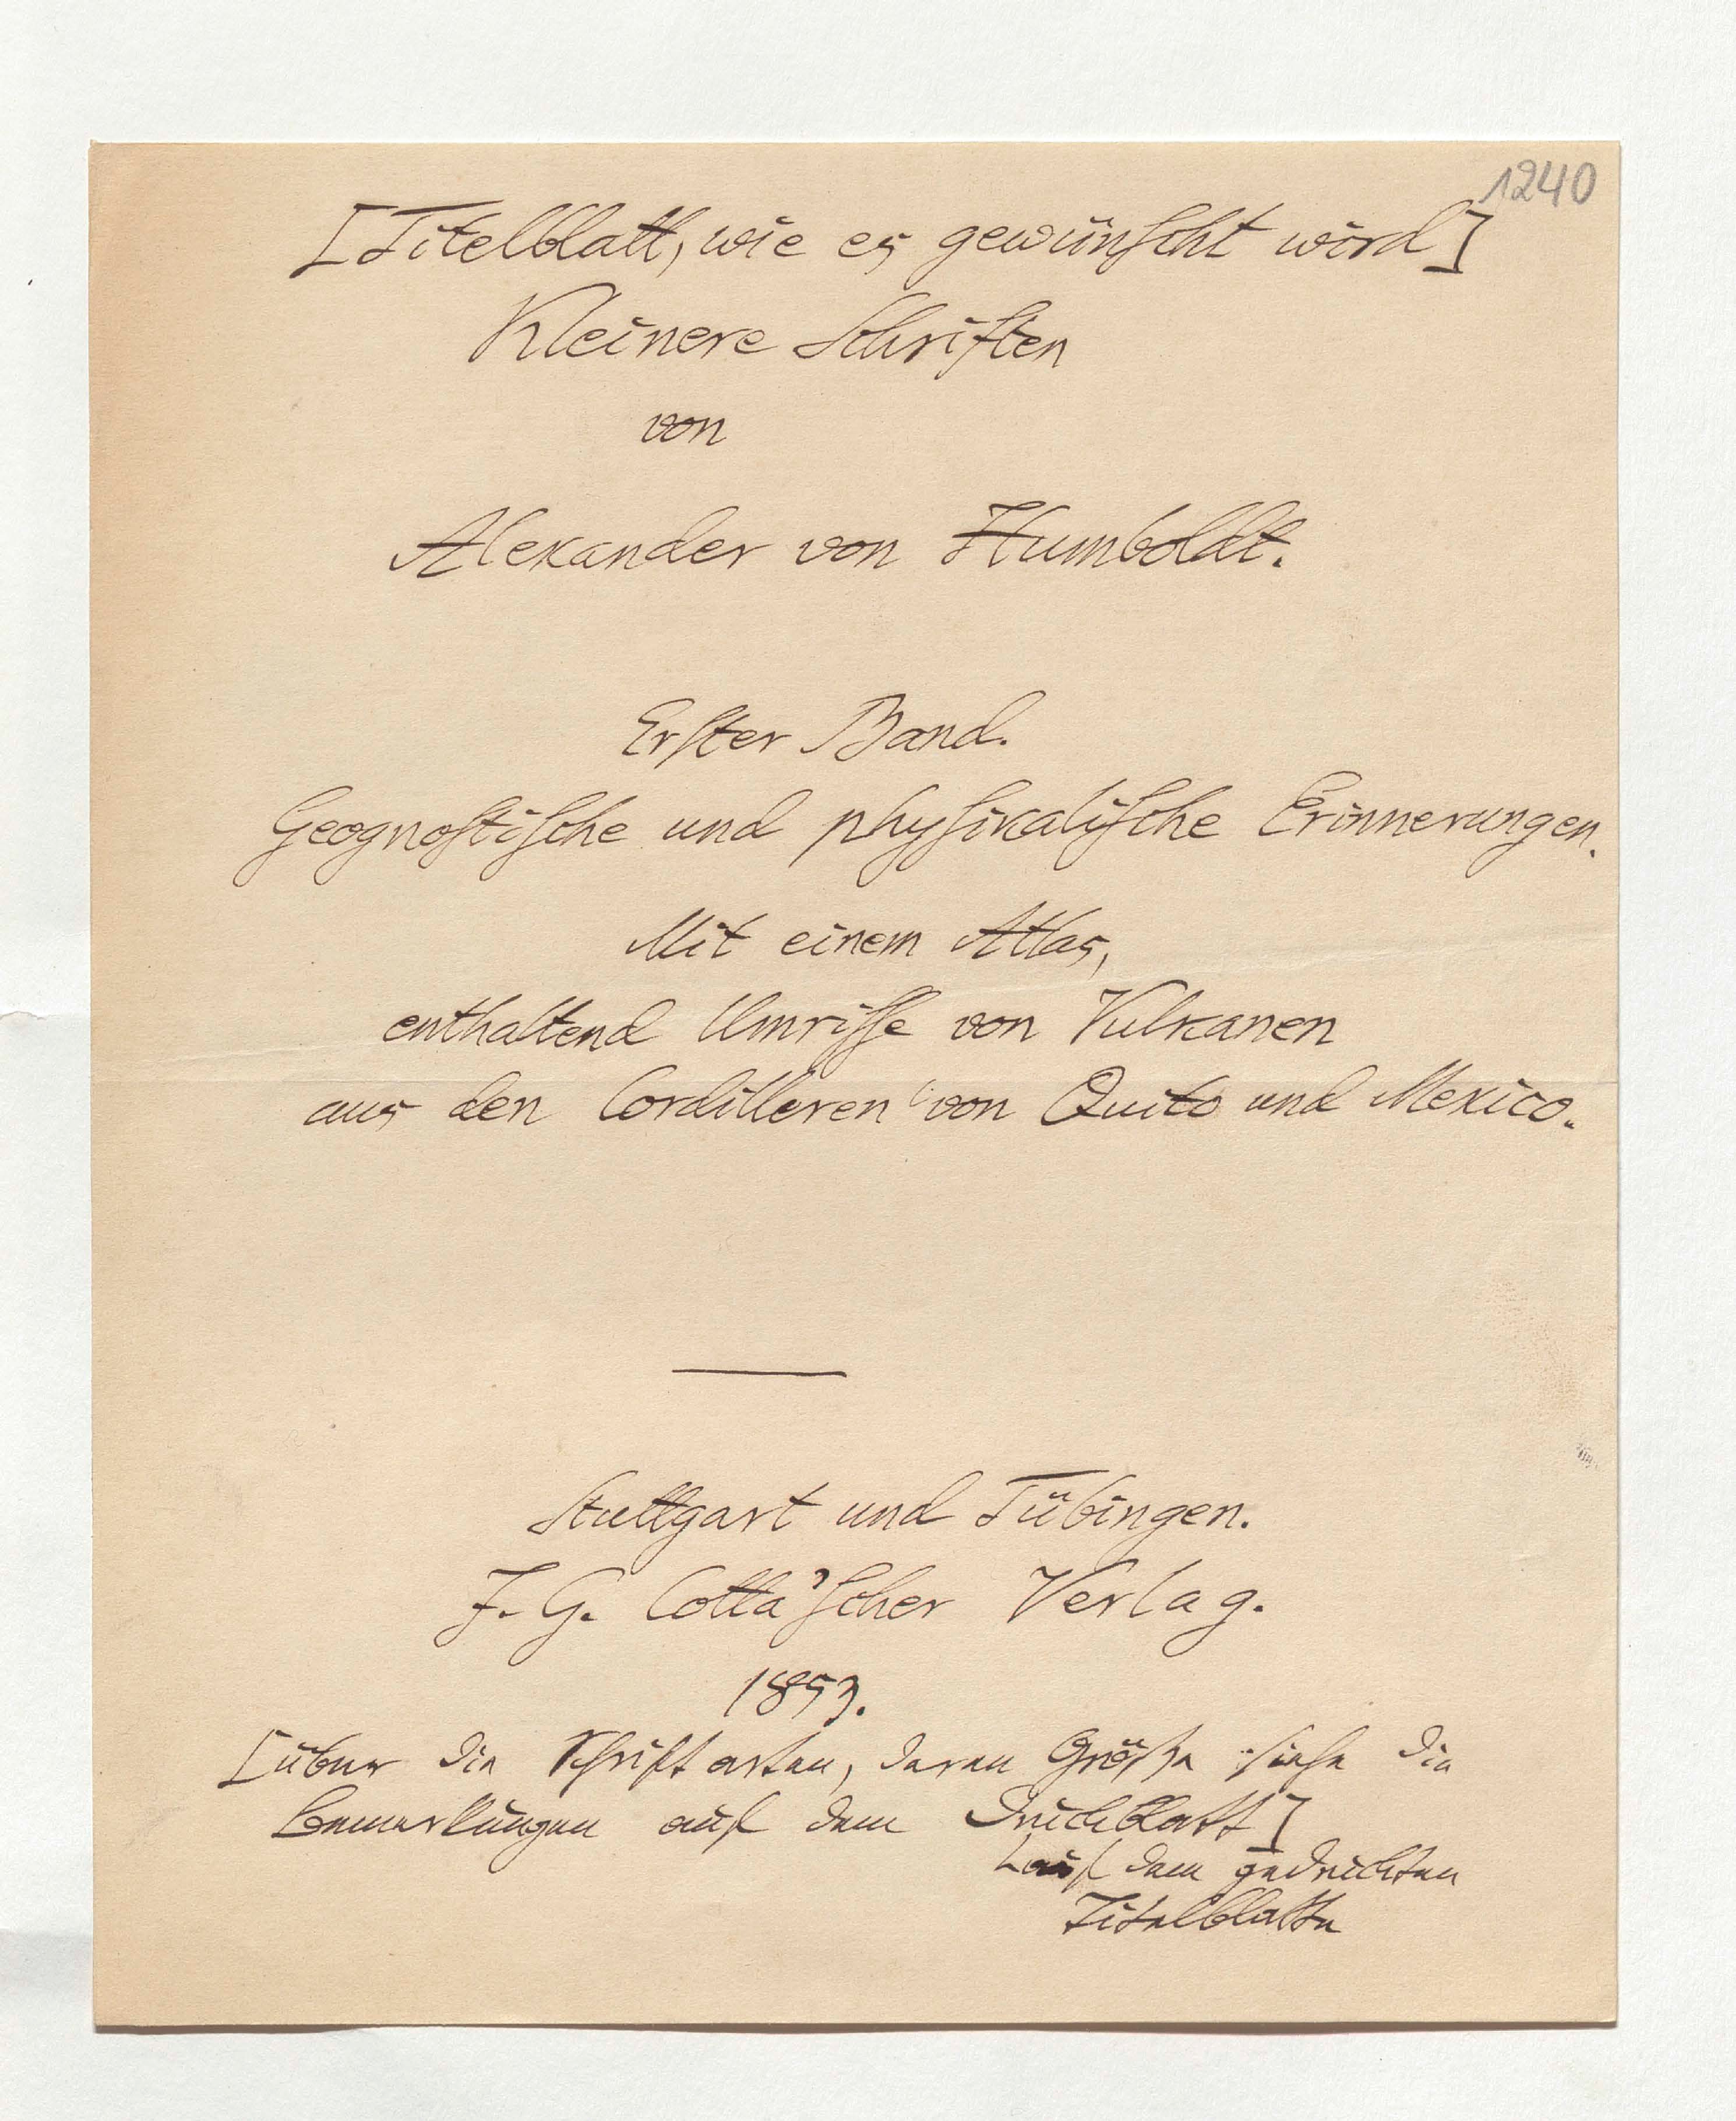 1240
[Titelblatt, wie es gewünſcht wird]
Kleinere Schriften
von
Alexander von Humboldt.
Erſter Band.
Geognoſtiſche und phyſikaliſche Erinnerungen.
Mit einem Atlas,
enthaltend Umriſſe von Vulkanen
aus den Cordilleren von Quito und Mexico.
Stuttgart und Tübingen.
J. G. Cotta'ſcher Verlag.
1853.
[über die Schriftarten, deren Größe siehe die
Bemerkungen auf dem Druckblatt]
auf dem gedruckten
Titelblatte